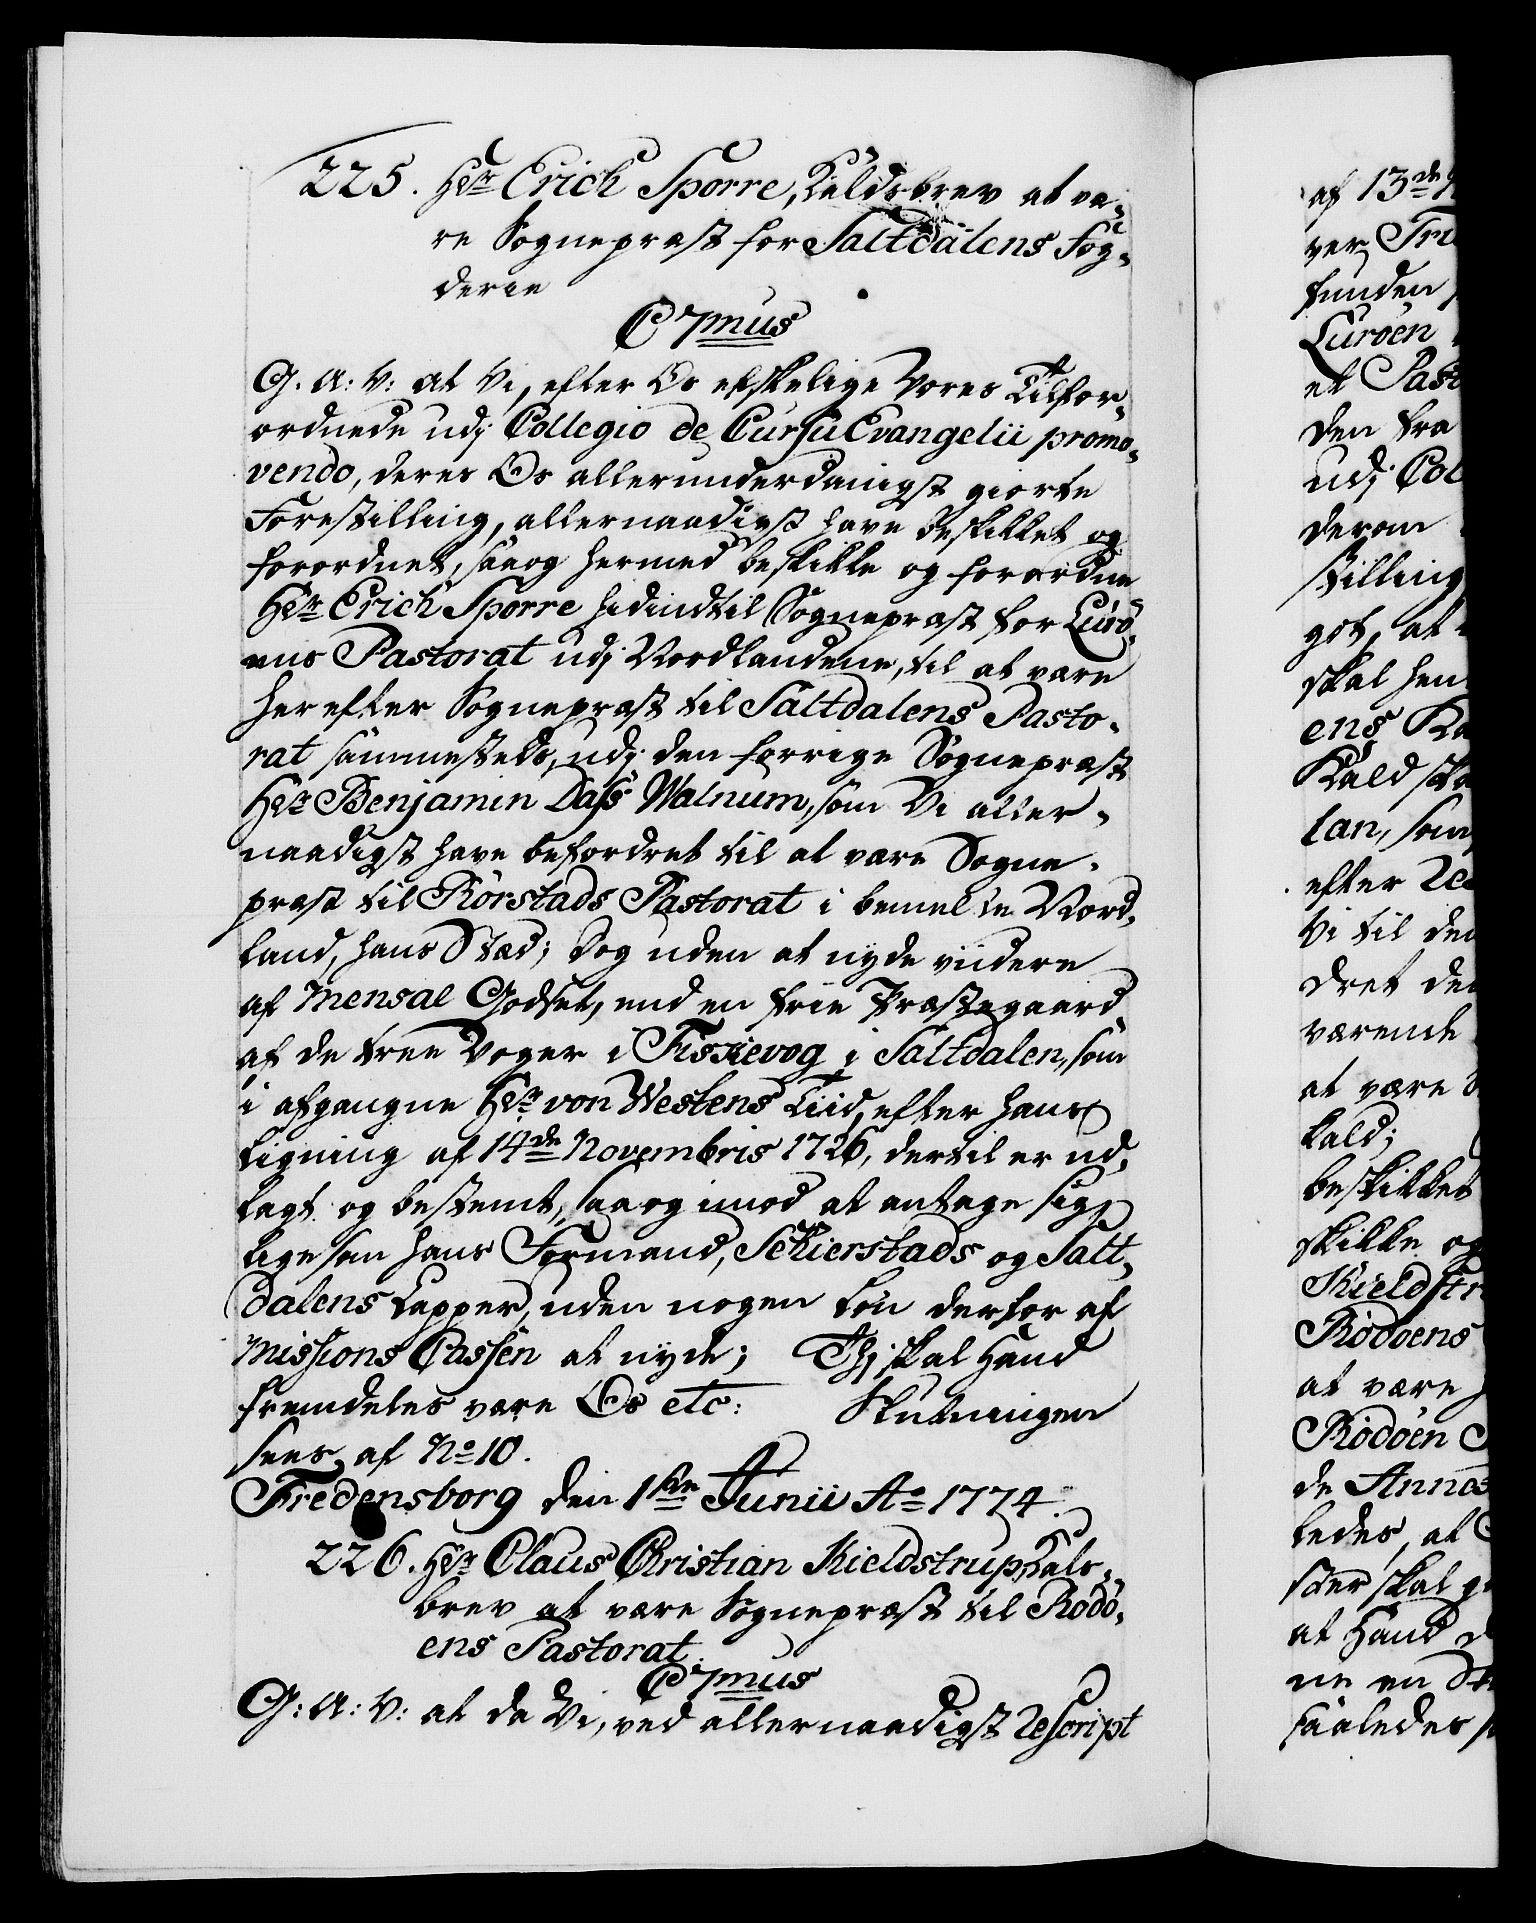 225. Hr. Erich Sporre, Kaldsbrev at væ-
re Sognepræst for Saltdalens Fog-
derie
C 7mus
G. A: V: at Vi, efter Os elskelige Vores Tilfor-
ordnede udj Collegio de Cursu Evangelii promo-
vendo, deres Os allerunderdanigst giorte
Forestilling, allernaadigst have beskikket og
forordnet, saaog hermed beskikke og forordne
Hr. Erich Sporre hidindtil Sognepræst for Lurø-
ens Pastorat udj Nordlandene, til at være
herefter Sognepræst til Saltdalens Pasto-
rat sammesteds, udj den forrige Sognepræst
Hr. Benjamin Dass Walnum, som Vi aller-
naadigst have befordret til at være Sogne-
præst til Rørstads Pastorat i bemelte Nord-
land, hans Stæd; dog uden at nyde viidere
af Mensal Godset, end en frie Præstegaard
af de tree Voger i Fiskevog i Saltdalen, som
i afgangne Hr. von Westens Tiid, efter hans
Ligning af 14de Novembris 1726, dertil er ud-
lagt og bestemt, saaog imod at antage sig
ligesom hans Formand, Skierstads og Salt-
dalens Lapper, uden nogen Løn derfor af
Missions Cassen at nyde; Thj skal Hand
fremdeles være Os etc: Slutningen
sees af No 10.
Fredensborg den 1ste Junii Ao 1774.
226. Hr. Claus Christian Kieldstrup, Kals-
brev at være Sognepræst til Rødø-
ens Pastorat.
C 7mus
G: A: V: at da Vi, ved allernaadigst Rescript
af 13de
ver
funden
Lurøen
et
den fra
udj
derom
stilling
got, at
skal
ens
Kald
lan, som
efter
Vi til den
dret
værende
at være
kald;
beskikket
skikke og
Rødøens
at være
Rødøen
de
ledes, at
skal
at Hand
ne en
saaledes